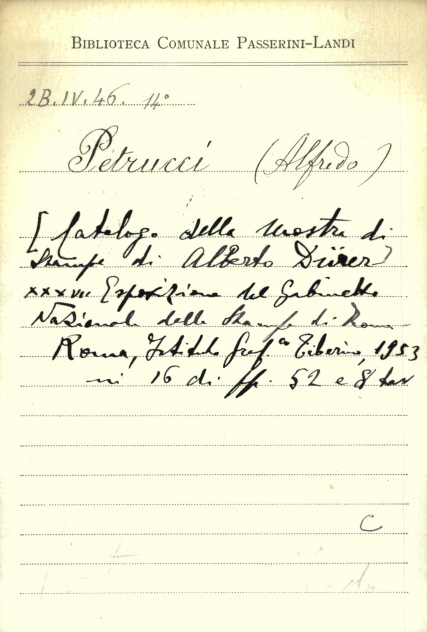 BIBLIOTECA COMUNALE PASSERINI-LANDI
2B.IV.46. 14°
Petrucci (Alfredo)
[Catalogo della mostra di
stampe di Alberto Dürer]
XXXVII Esposizione del Gabinetto
Nazionale delle Stampe di Roma
Roma, Istituto Graf.co Tiberino, 1953
in 16 di pp. 52 e 8 tav
C